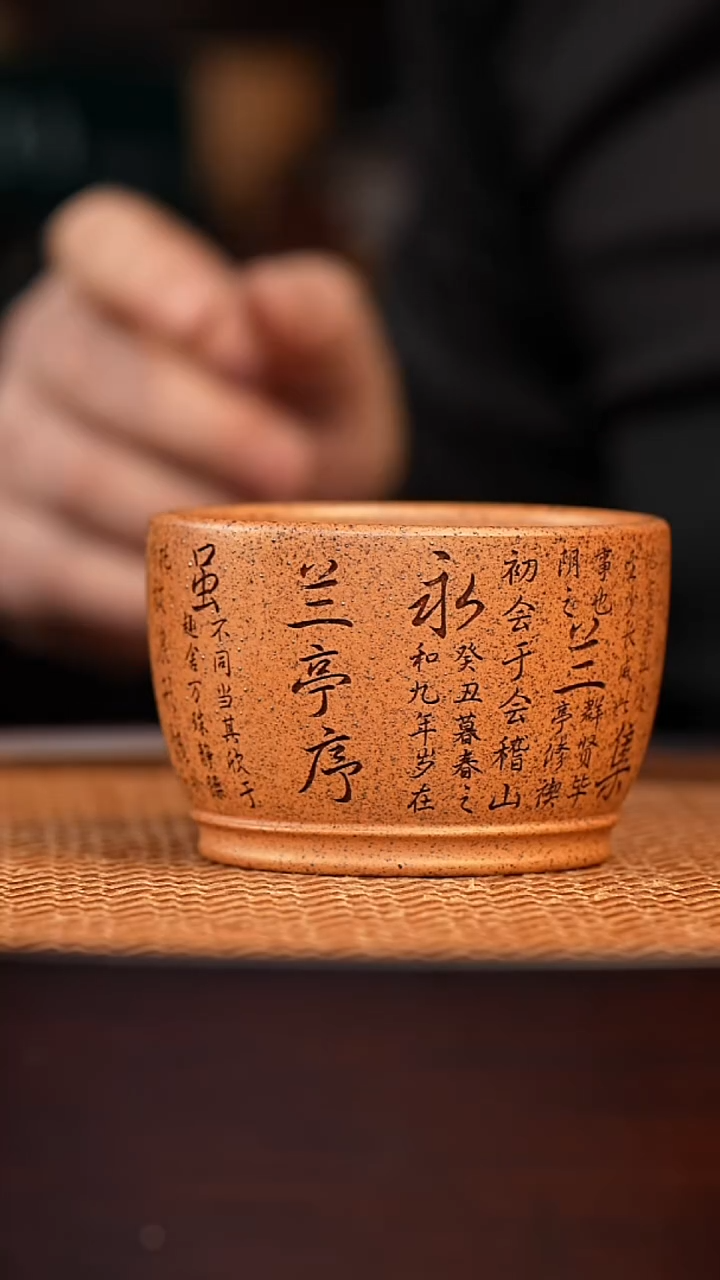 虽趣舍万殊静躁
不同当其欣于
兰亭序
永和九年岁在
癸丑暮春之
初会于会稽山
阴之兰亭修禊
事也群贤毕
集